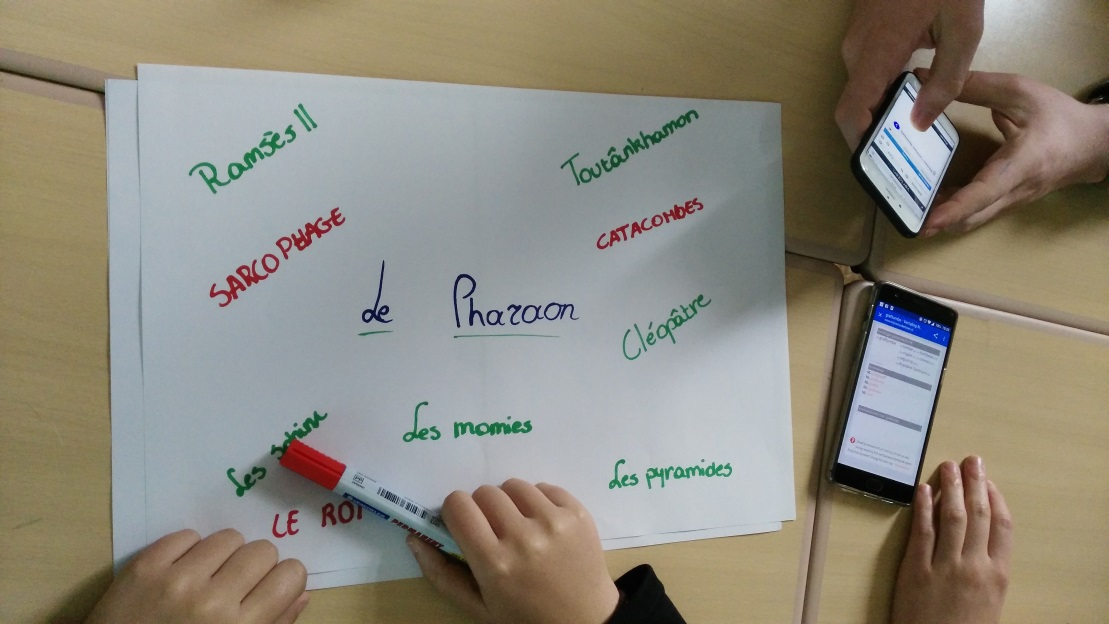 Ramsès II
Toutânkhamon
SARCOPHAGE
CATACOMBES
de Pharaon
Cléopâtre
Les momies
Les sphinx
Les pyramides
LE ROI
PERMANENT